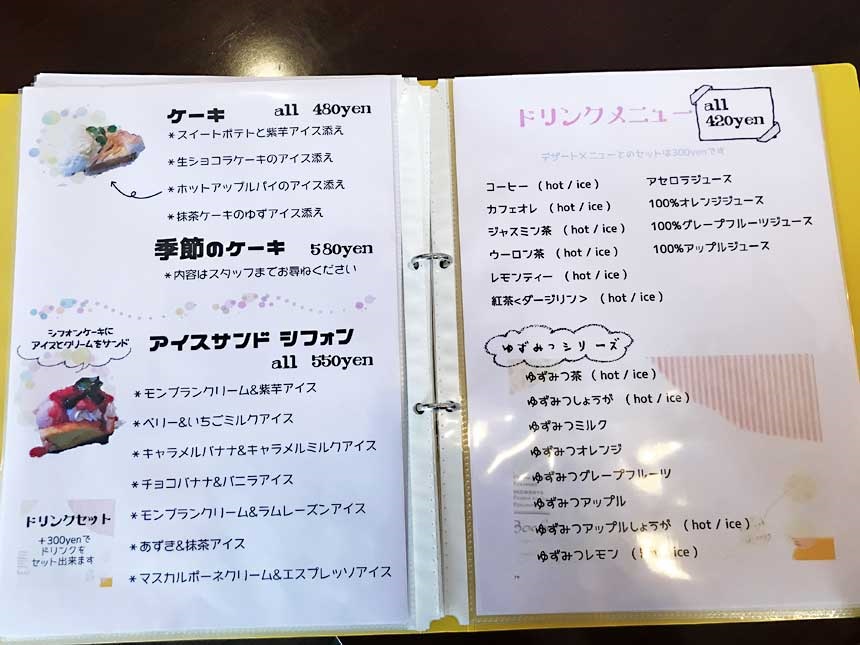 ケーキ all 480yen
*スイートポテトと紫芋アイス添え
*生ショコラケーキのアイス添え
*ホットアップルパイのアイス添え
*抹茶ケーキのゆずアイス添え
季節のケーキ 580yen
*内容はスタッフまでお尋ねください
シフォンケーキに
アイスとクリームをサンド
アイスサンド シフォン
all 550yen
*モンブランクリーム&紫芋アイス
*ベリー&いちごミルクアイス
*キャラメルバナナ&キャラメルミルクアイス
*チョコバナナ&バニラアイス
*モンブランクリーム&ラムレーズンアイス
*あずき&抹茶アイス
*マスカルポーネクリーム&エスプレッソアイス
ドリンクセット
+300yenで
ドリンクを
セット出来ます
ドリンクメニュー
all
420yen
デザートメニューとのセットは300yenです
コーヒー (hot / ice)
カフェオレ (hot / ice)
ジャスミン茶 (hot / ice)
ウーロン茶 (hot / ice)
レモンティー (hot / ice)
紅茶<ダージリン> (hot / ice)
アセロラジュース
100%オレンジジュース
100%グレープフルーツジュース
100%アップルジュース
ゆずみつシリーズ
ゆずみつ茶 (hot / ice)
ゆずみつしょうが (hot / ice)
ゆずみつミルク
ゆずみつオレンジ
ゆずみつグレープフルーツ
ゆずみつアップル
ゆずみつアップルしょうが (hot / ice)
ゆずみつレモン (hot / ice)